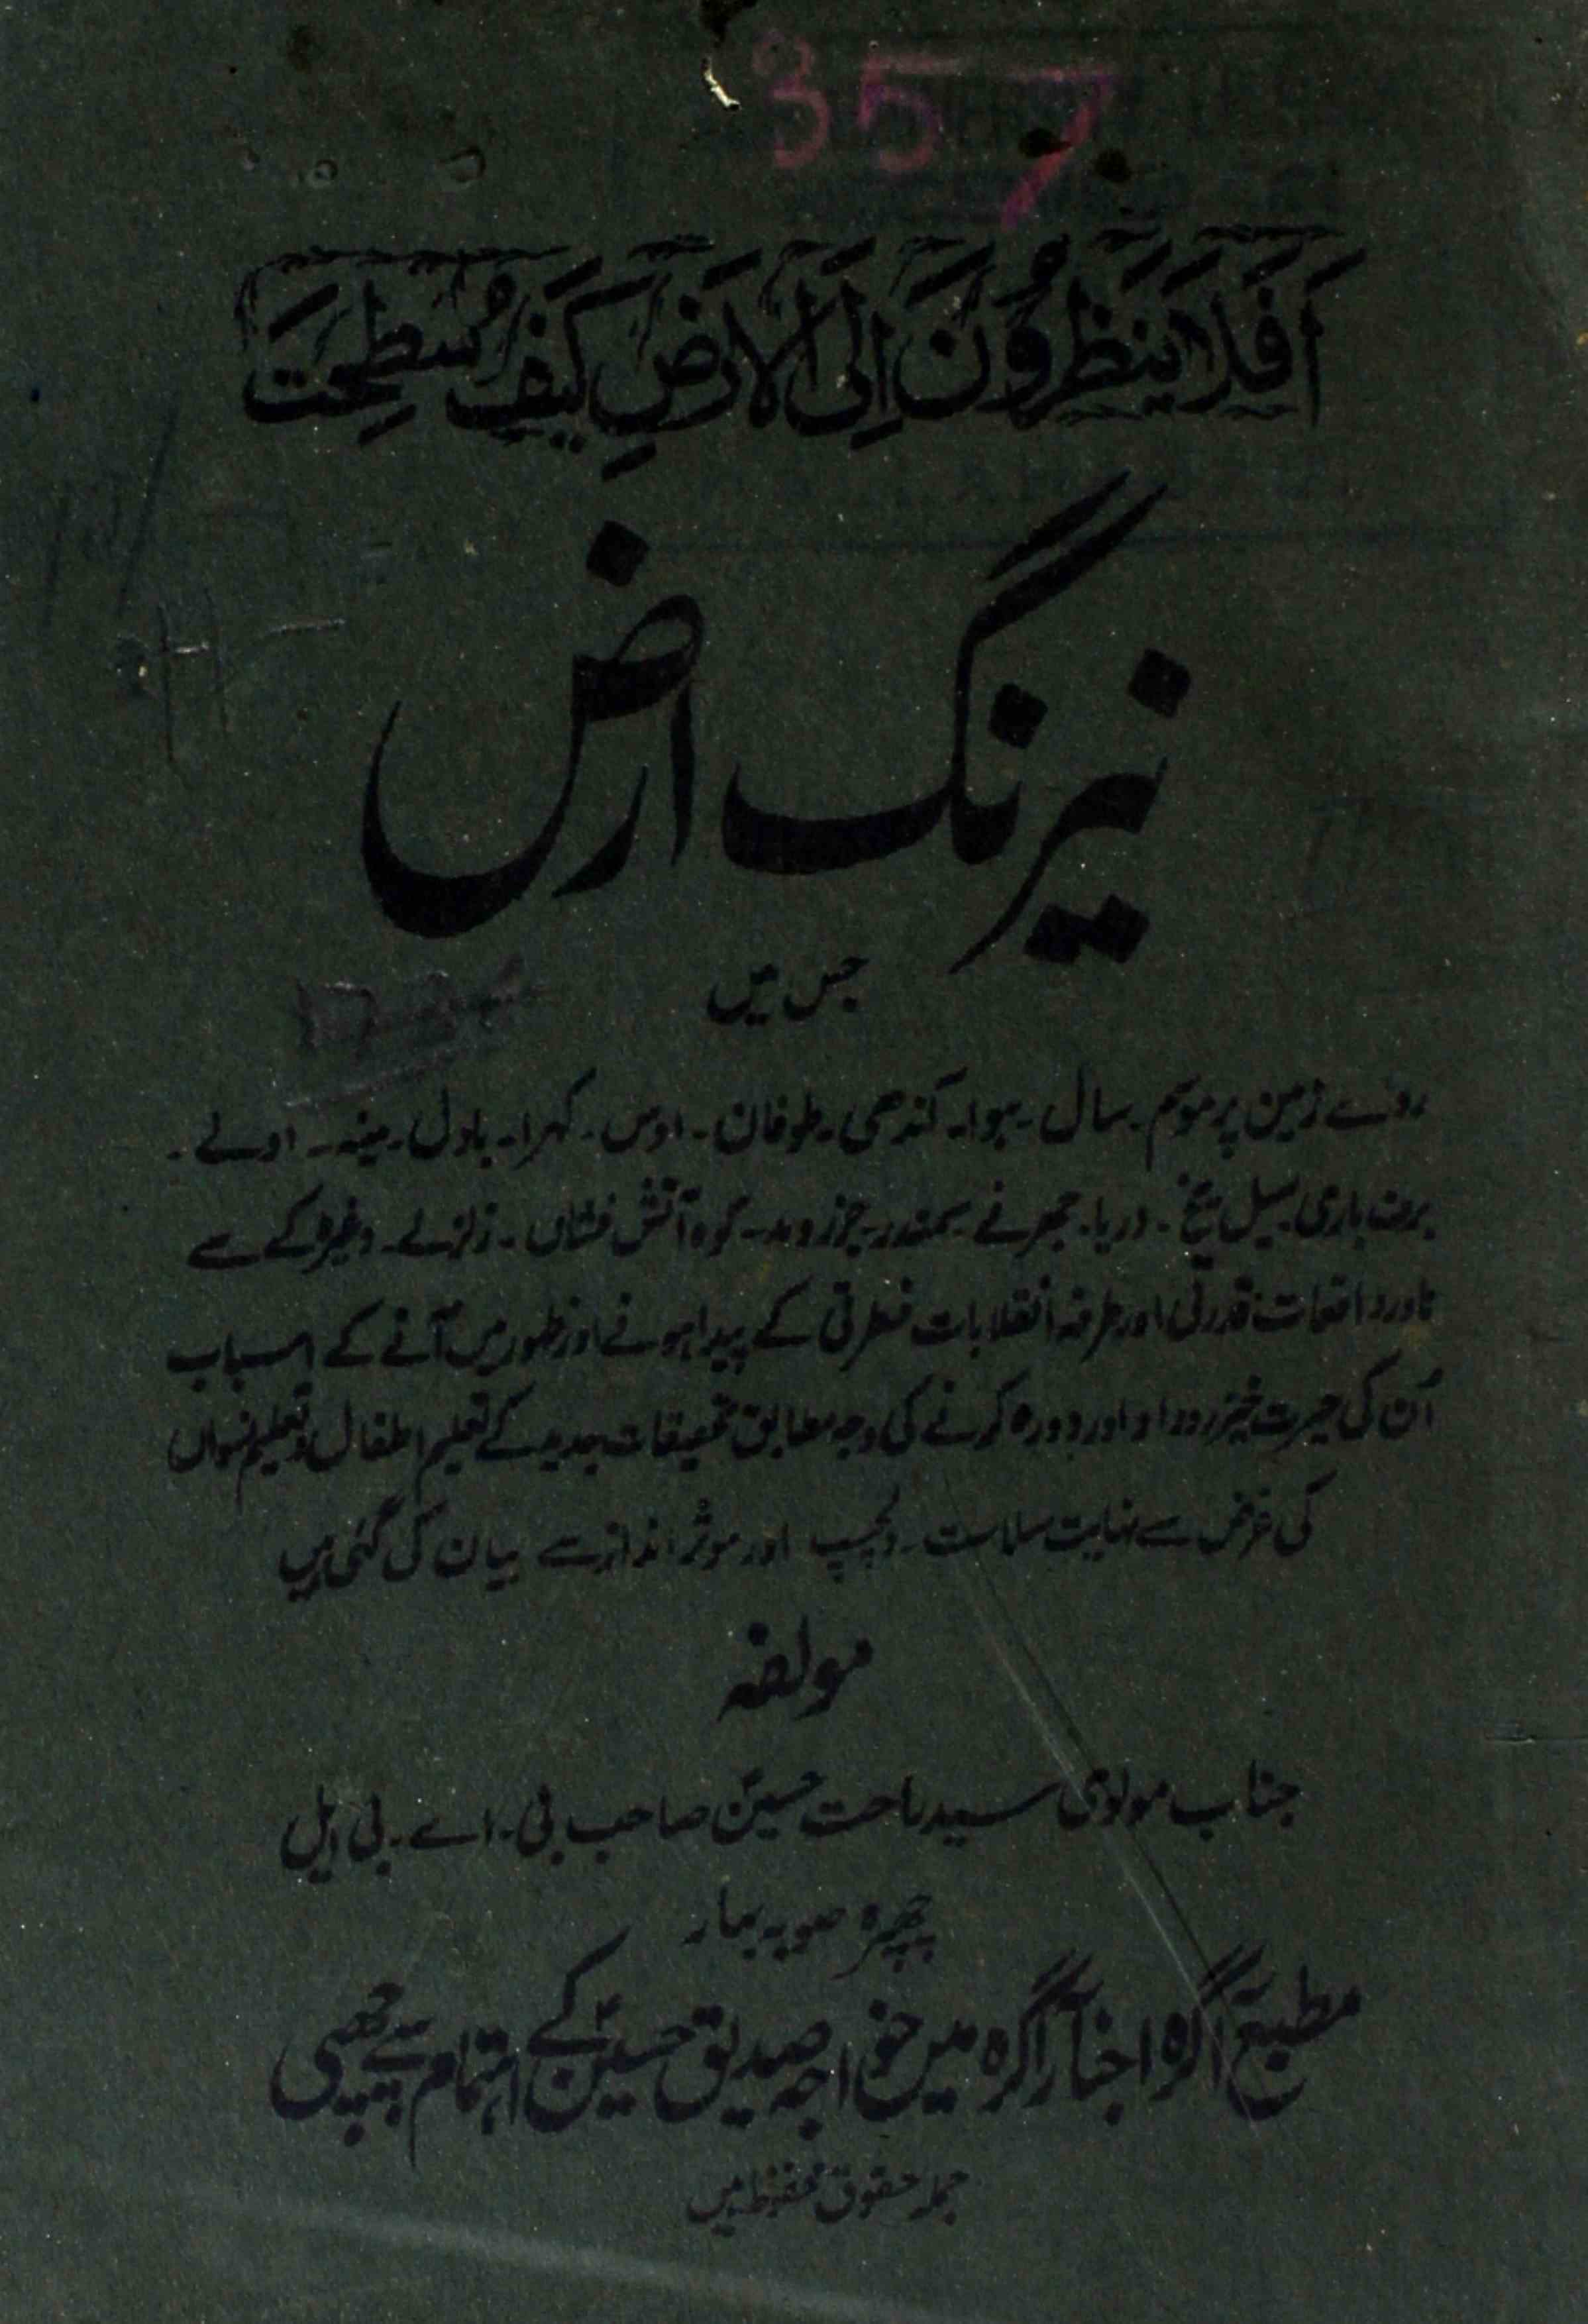 357
اَفَلَا یَنظُرُوْنَ اِلَی الْاَرَضِ کَیْفَ سُطِحَتَ
نیرنگ ارض
جس میں
روے زمین پر موسم۔ سال۔ ہوا۔ آندھی۔ طوفان۔ اوس۔ کہرا۔ بادل۔ مینہ۔ اولے۔
برف باری سیل یخ۔ دریا۔ جھرنے۔ سمندر۔ جزر و مد۔ کوہ آتش فشاں۔ زلزلے۔ وغیرہ کے سے
نادر واقعات قدرتی اور طرفہ انقلابات فطرتی کے پیدا ہونے اور ظہور میں آنے کے اسباب
اُن کی حیرت خیز روداد اور دورہ کرنے کی وجہ مطابق تحقیقات جدیدہ کے تعلیم اطفال و تعلیم نسواں
کی غرض سے نہایت سلاست۔ دلچسپ اور موثر انداز سے بیان کی گئی ہیں
مولفہ
جناب مولوی سید راحت حسین صاحب بی۔ اے۔ بی ایل
چھپرہ صوبہ بہار
مطبع آگرہ اخبار آگرہ میں خواجہ صدیق حسین کے اہتمام سے چھپی
جملہ حقوق محفوظ ہیں